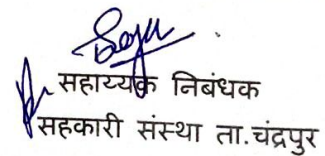 सहाय्यक निबंधक
सहकारी संस्था ता.चंद्रपुर